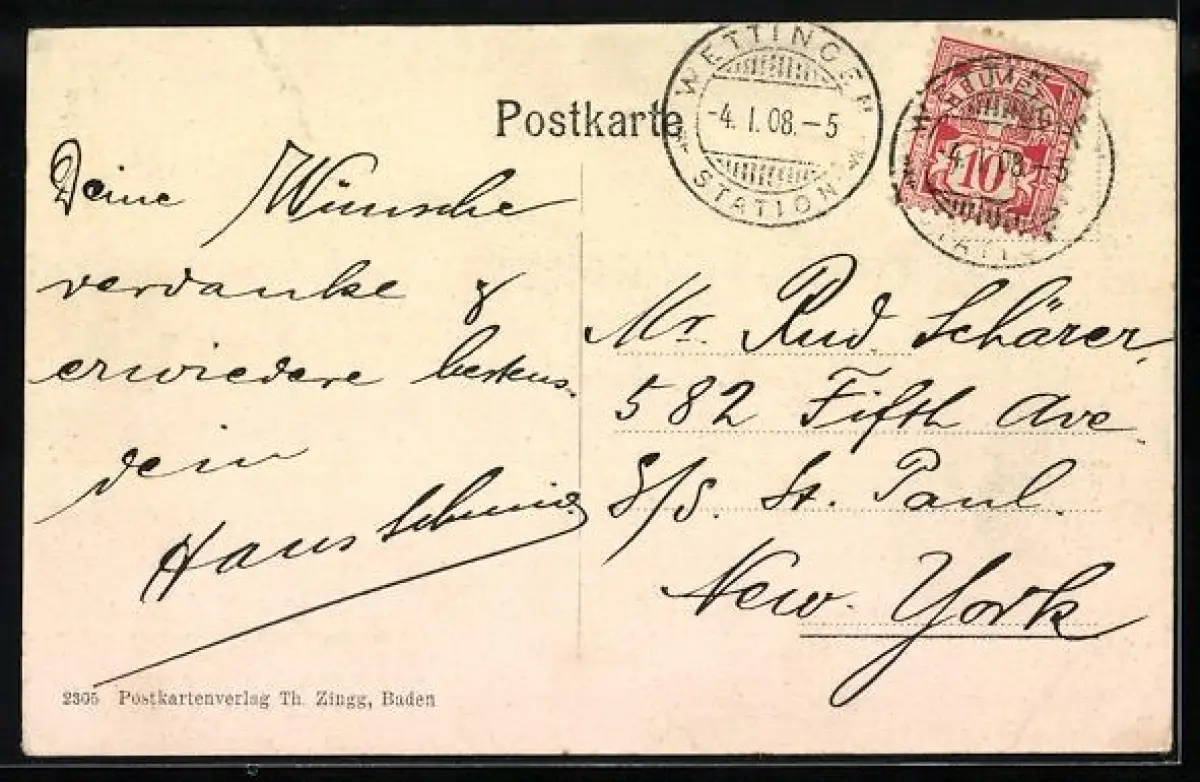 Postkarte
WETTINGEN
-4. I. 08.-5
STATION
10
-4. I. 08.-5
Deine Wünsche
verdanke &
erwiedere bestens.
dein
Hans Schmid
Mr. Rud. Schärer,
582 Fifth Ave.
S/S. St. Paul.
New. York
2305 Postkartenverlag Th. Zingg, Baden